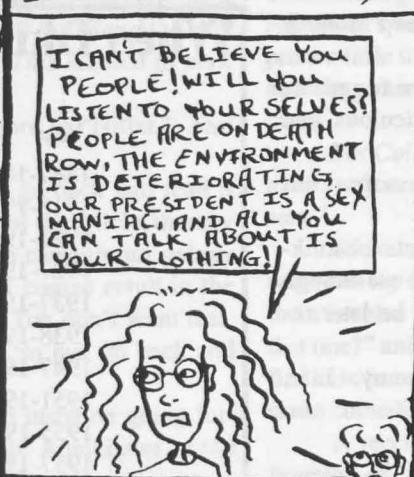 I CAN'T BELIEVE YOU
PEOPLE! WILL YOU
LISTEN TO YOUR SELVES?
PEOPLE ARE ON DEATH
ROW, THE ENVIRONMENT
IS DETERIORATING,
OUR PRESIDENT IS A SEX
MANIAC, AND ALL YOU
CAN TALK ABOUT IS
YOUR CLOTHING!